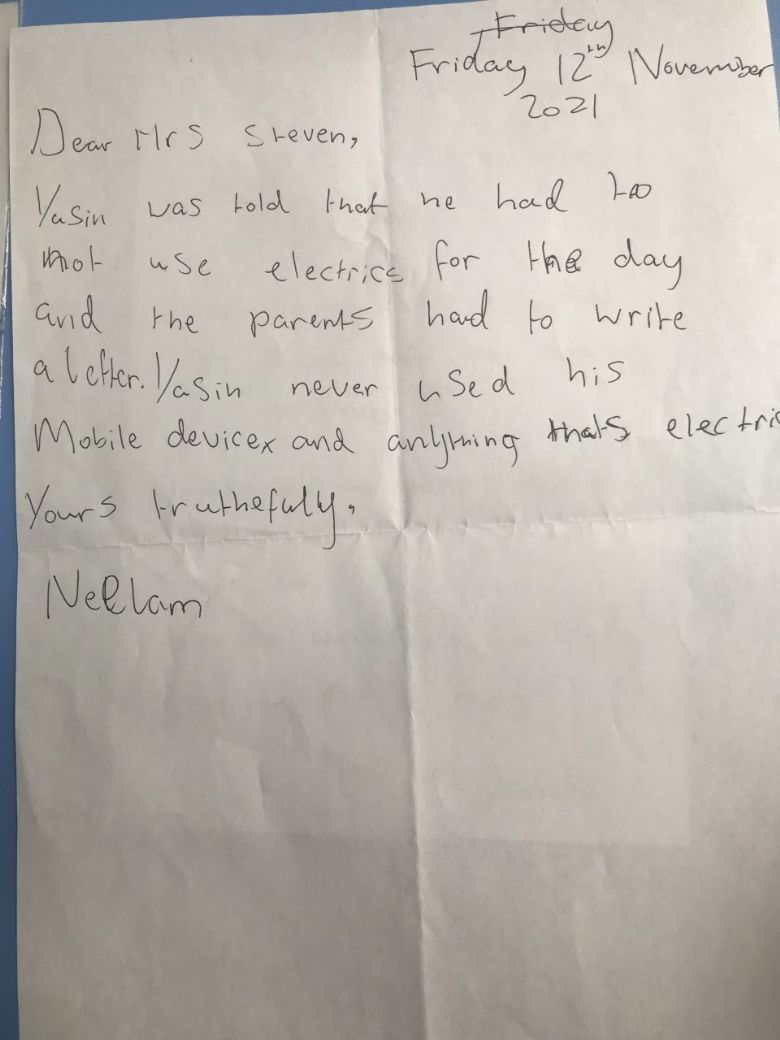 Friday
Friday 12th November
2021
Dear Mrs Steven,
Yasin was told that he had to
not use electrics for the day
and the parents had to write
a letter. Yasin never used his
Mobile devicex and anlything thats electric
Yours truthefuly,
Neelam